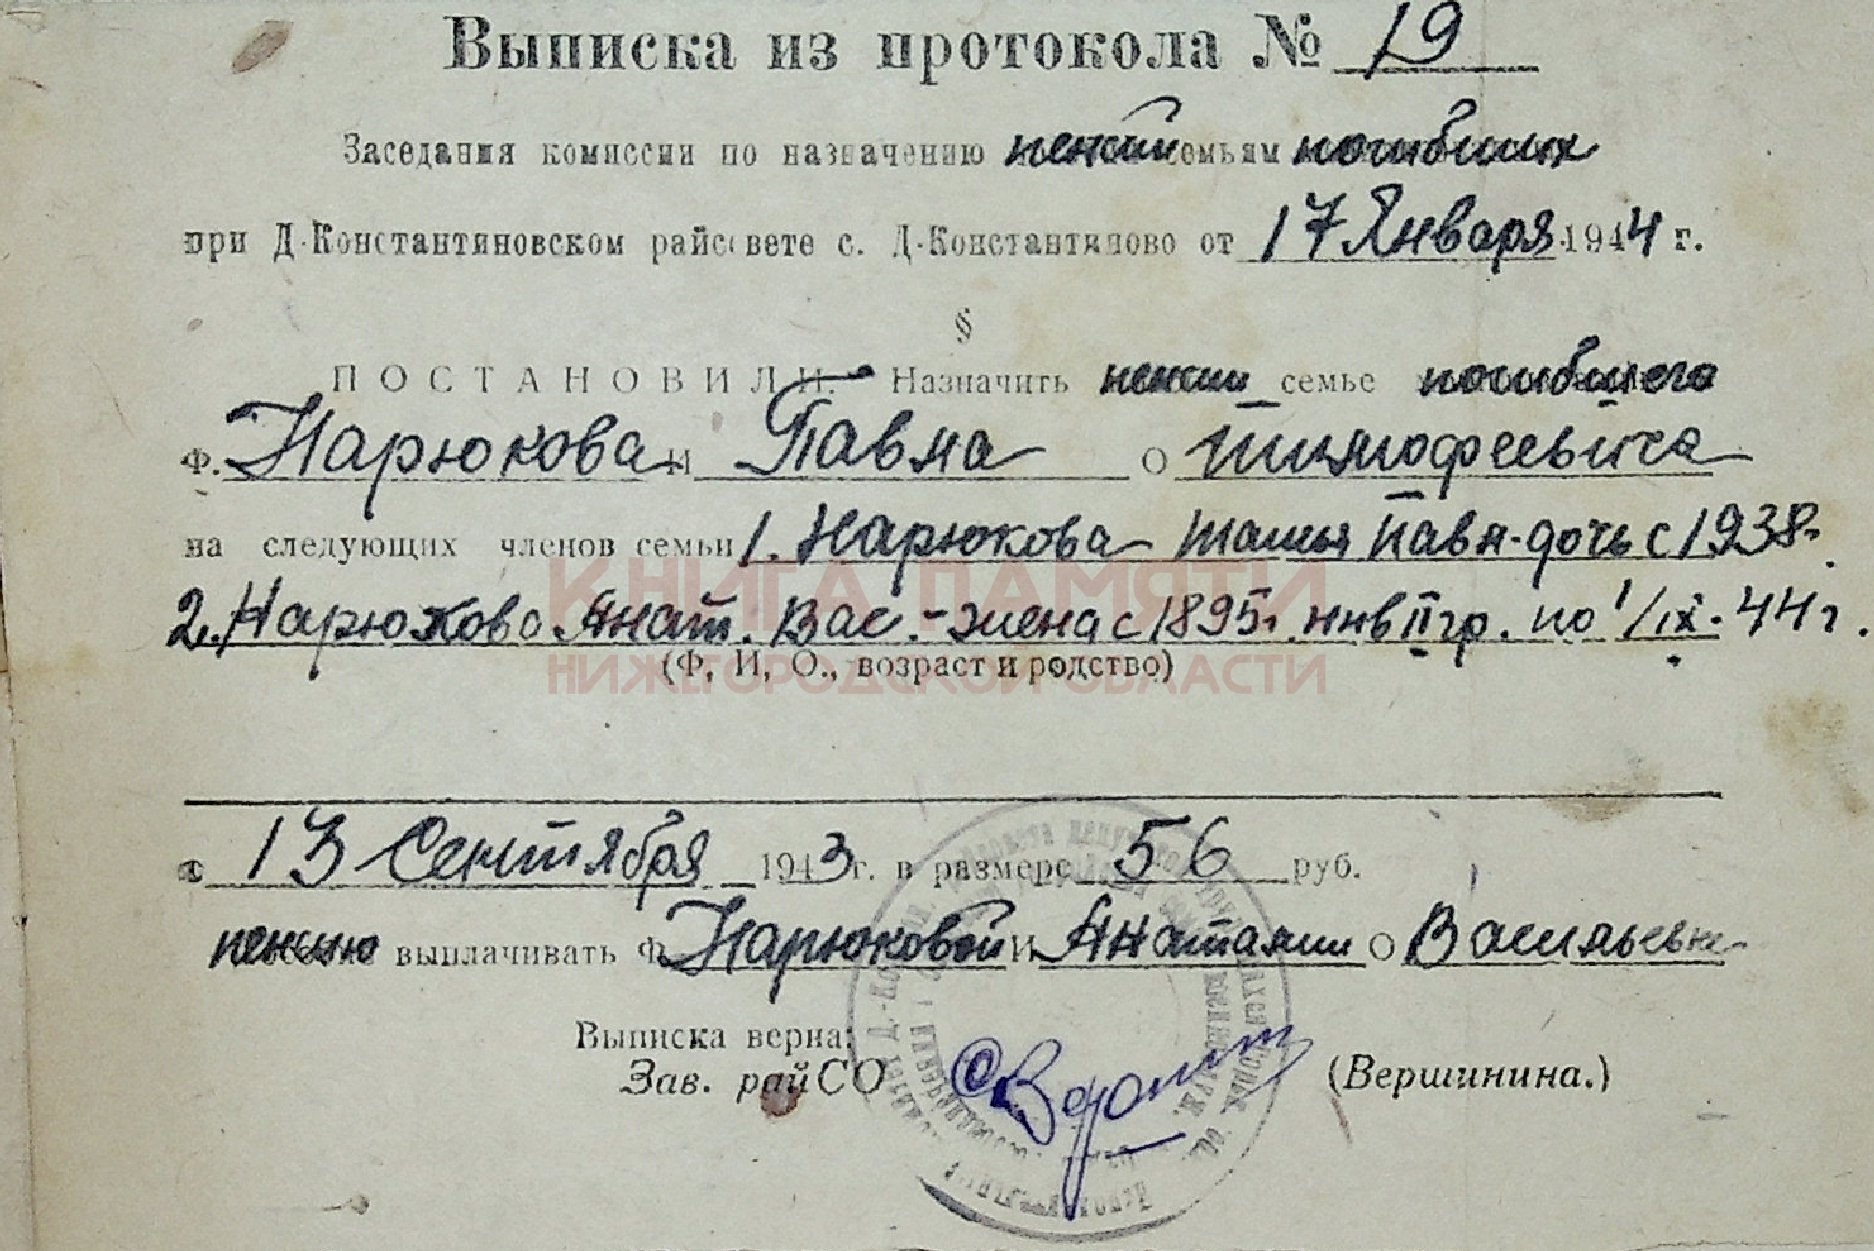 Выписка из протокола № 19
Заседания комиссии по назначению пенсии семьям погибших
при Д-Константиновском райсовете с. Д-Константиново от 17 Января 1944 г.
§
ПОСТАНОВИЛИ: Назначить пенсии семье погибшего
Ф. Нарюкова И Павла О Тимофеевича
на следующих членов семьи 1. Нарюкова Павл-дочь с 1938г.
2. Нарюкова Анат. Вас.-жена с 1895г. инв II гр. по 1/IX-44г.
(Ф, И, О., возраст и родство)
КНИГА ПАМЯТИ
НИЖЕГОРОДСКОЙ ОБЛАСТИ
с 13 Сентября 1943г. в размере 56 руб.
пенсию выплачивать Ф Нарюковой И Анаталии О Васильевне
Выписка верна:
Зав. райСО (Вершинина.)